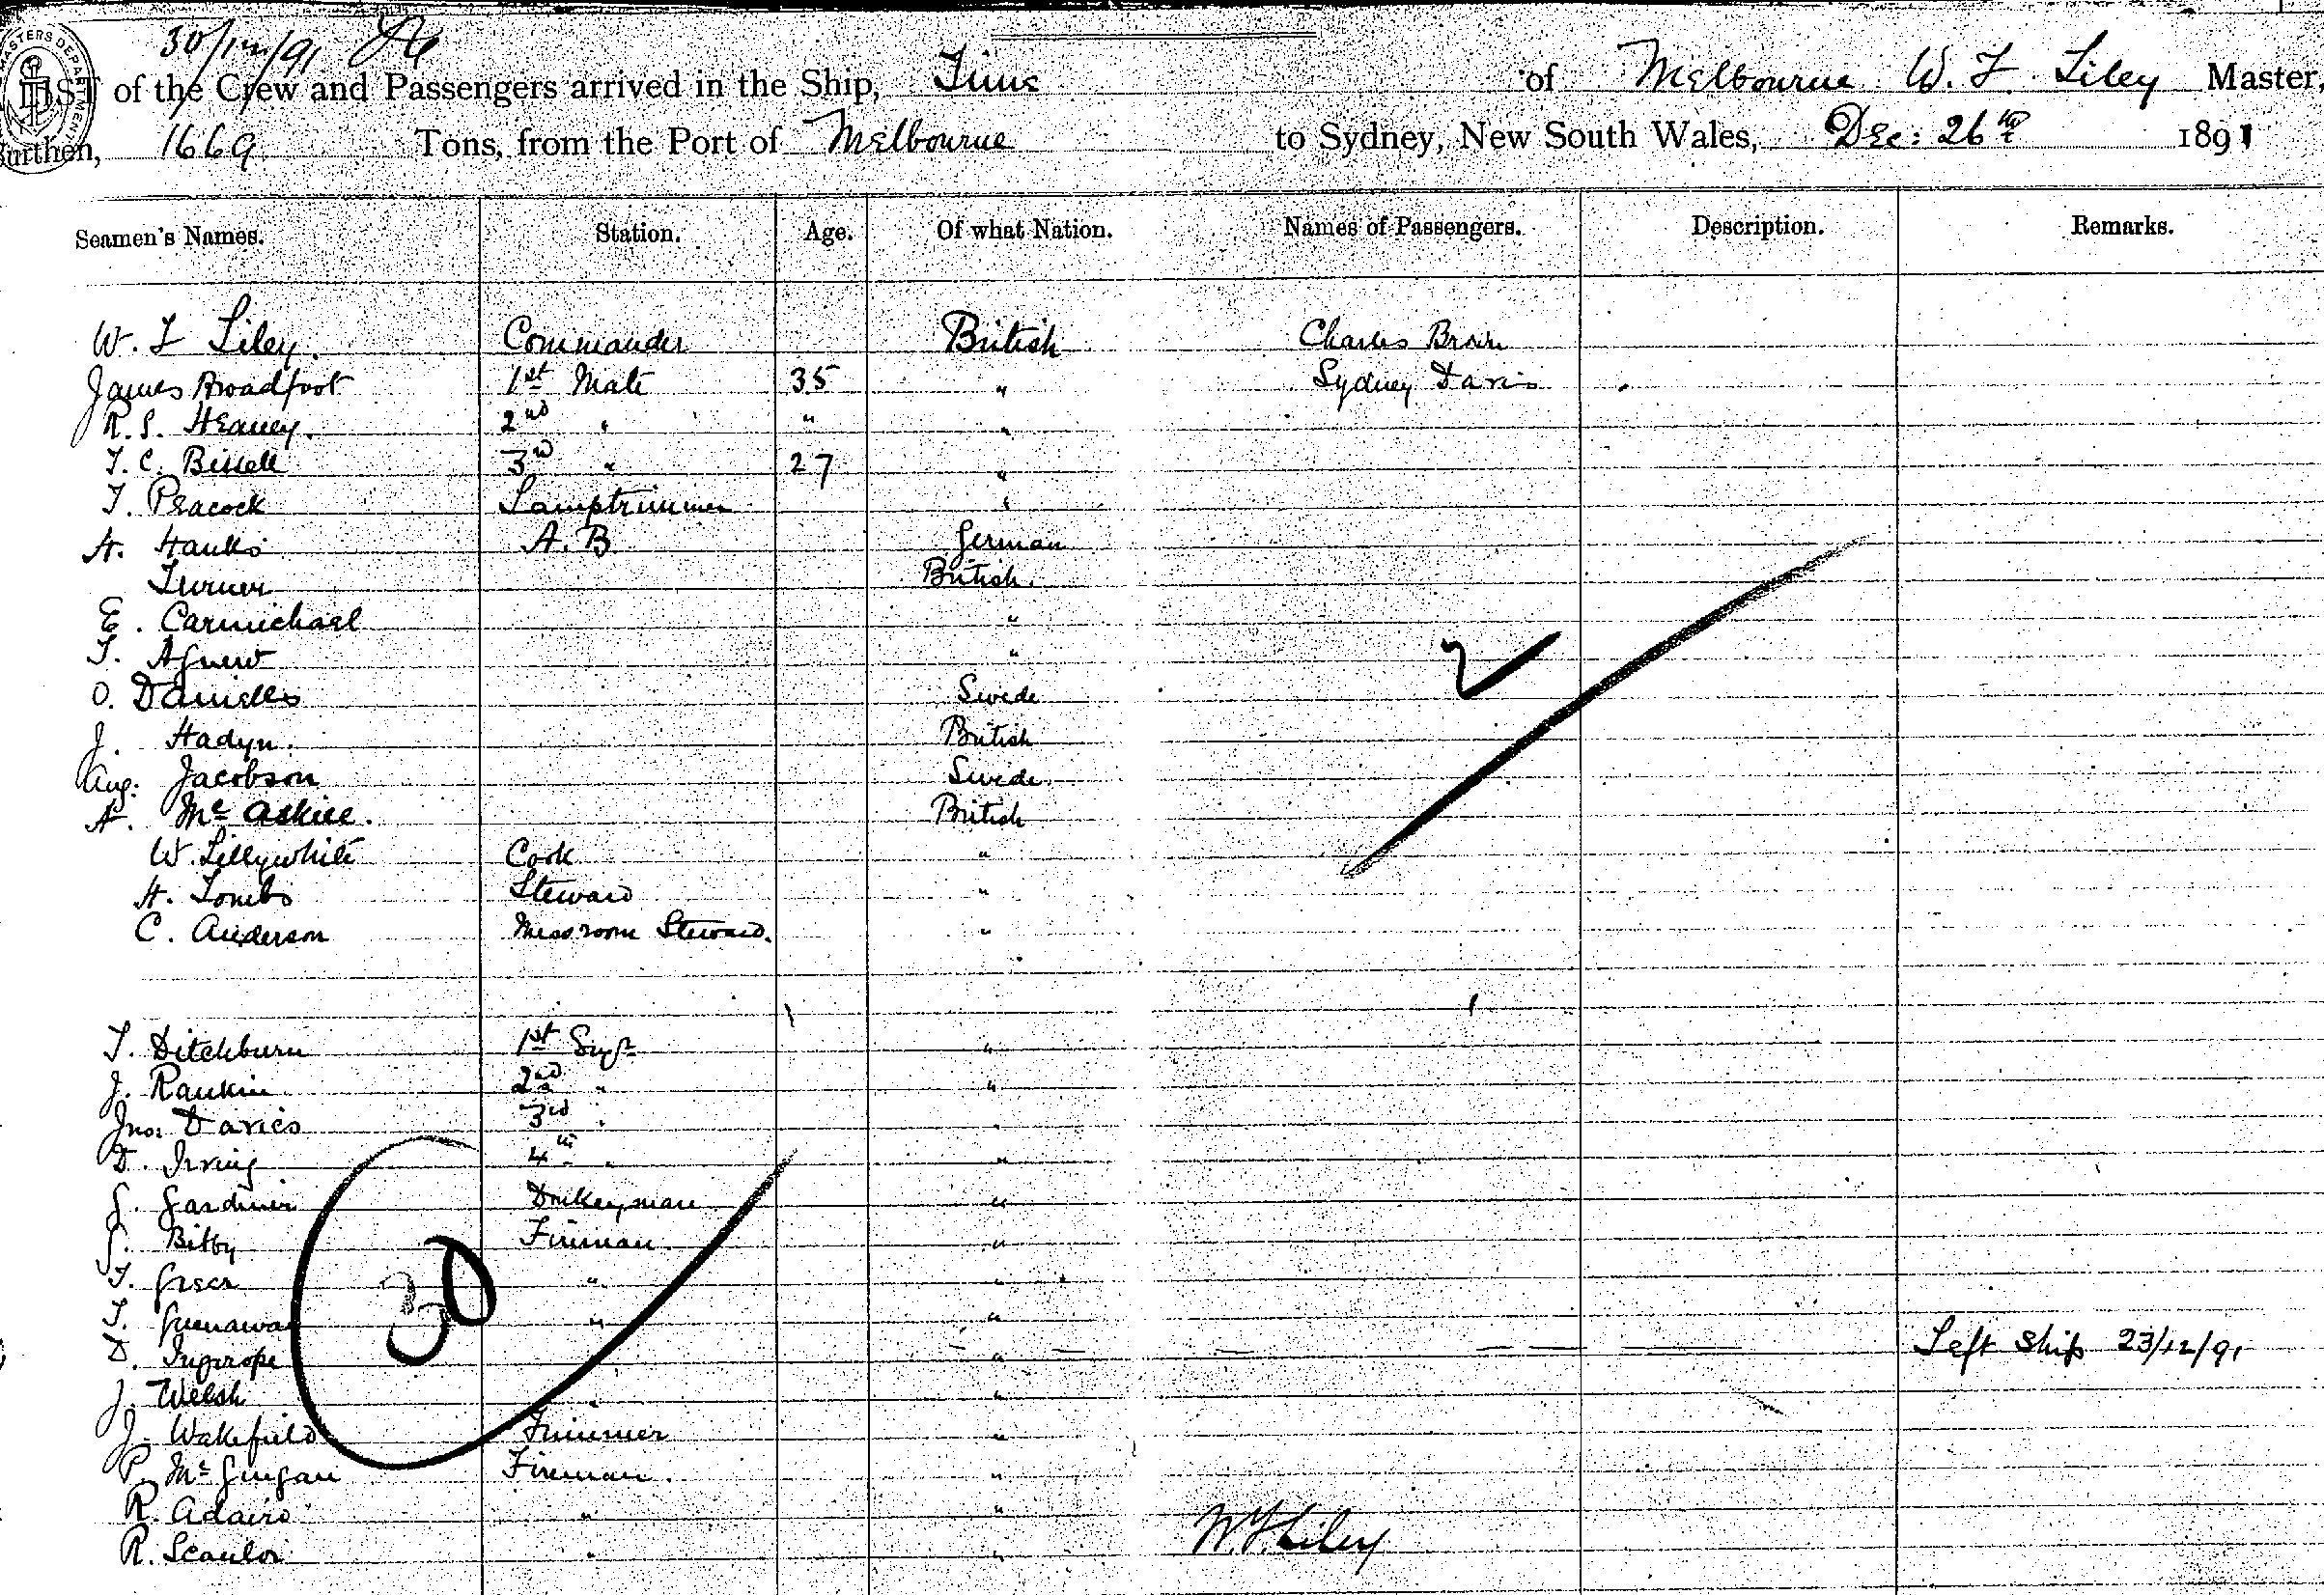 30/12/91
MASTERS DEPARTMENT
LIST of the Crew and Passengers arrived in the Ship, Time of Melbourne W. F. Liley Master,
Burthen, 1669 Tons, from the Port of Melbourne to Sydney, New South Wales, Dec: 26th 1891
Seamen's Names. Station. Age. Of what Nation. Names of Passengers. Description. Remarks.
W. F Liley. Commander British Charles Brown
James Broadfoot 1st Mate 35 " Sydney Davis
R. S. Heaney. 2nd " " "
T. C. Bissell 3rd " 27 "
T. Peacock Lamptrimmer "
H. A. B German
Turner British.
E. Carmichael "
T. Agnew "
O. Daniells Swede
J. Hadyn. British
Aug: Jacobson Swede
A. Mc Askill. British
W. Lillywhite Cook "
H. Tombs Steward "
C. Anderson Messroom Steward. "
T. Ditchburn 1st Engr "
J. Rankin 2nd " "
Jno: Davies 3rd " "
D. Irving 4th " "
G. Gardiner Donkeyman "
J. Bibby Fireman "
T. Greer " "
T. Greenaway " "
D. " Left Ship 23/12/91
J. Welsh " "
J. Wakefield Trimmer "
P. Mc Guigan Fireman. "
R. Adair " "
R. Scanlon " "
2
30
W. F. Liley